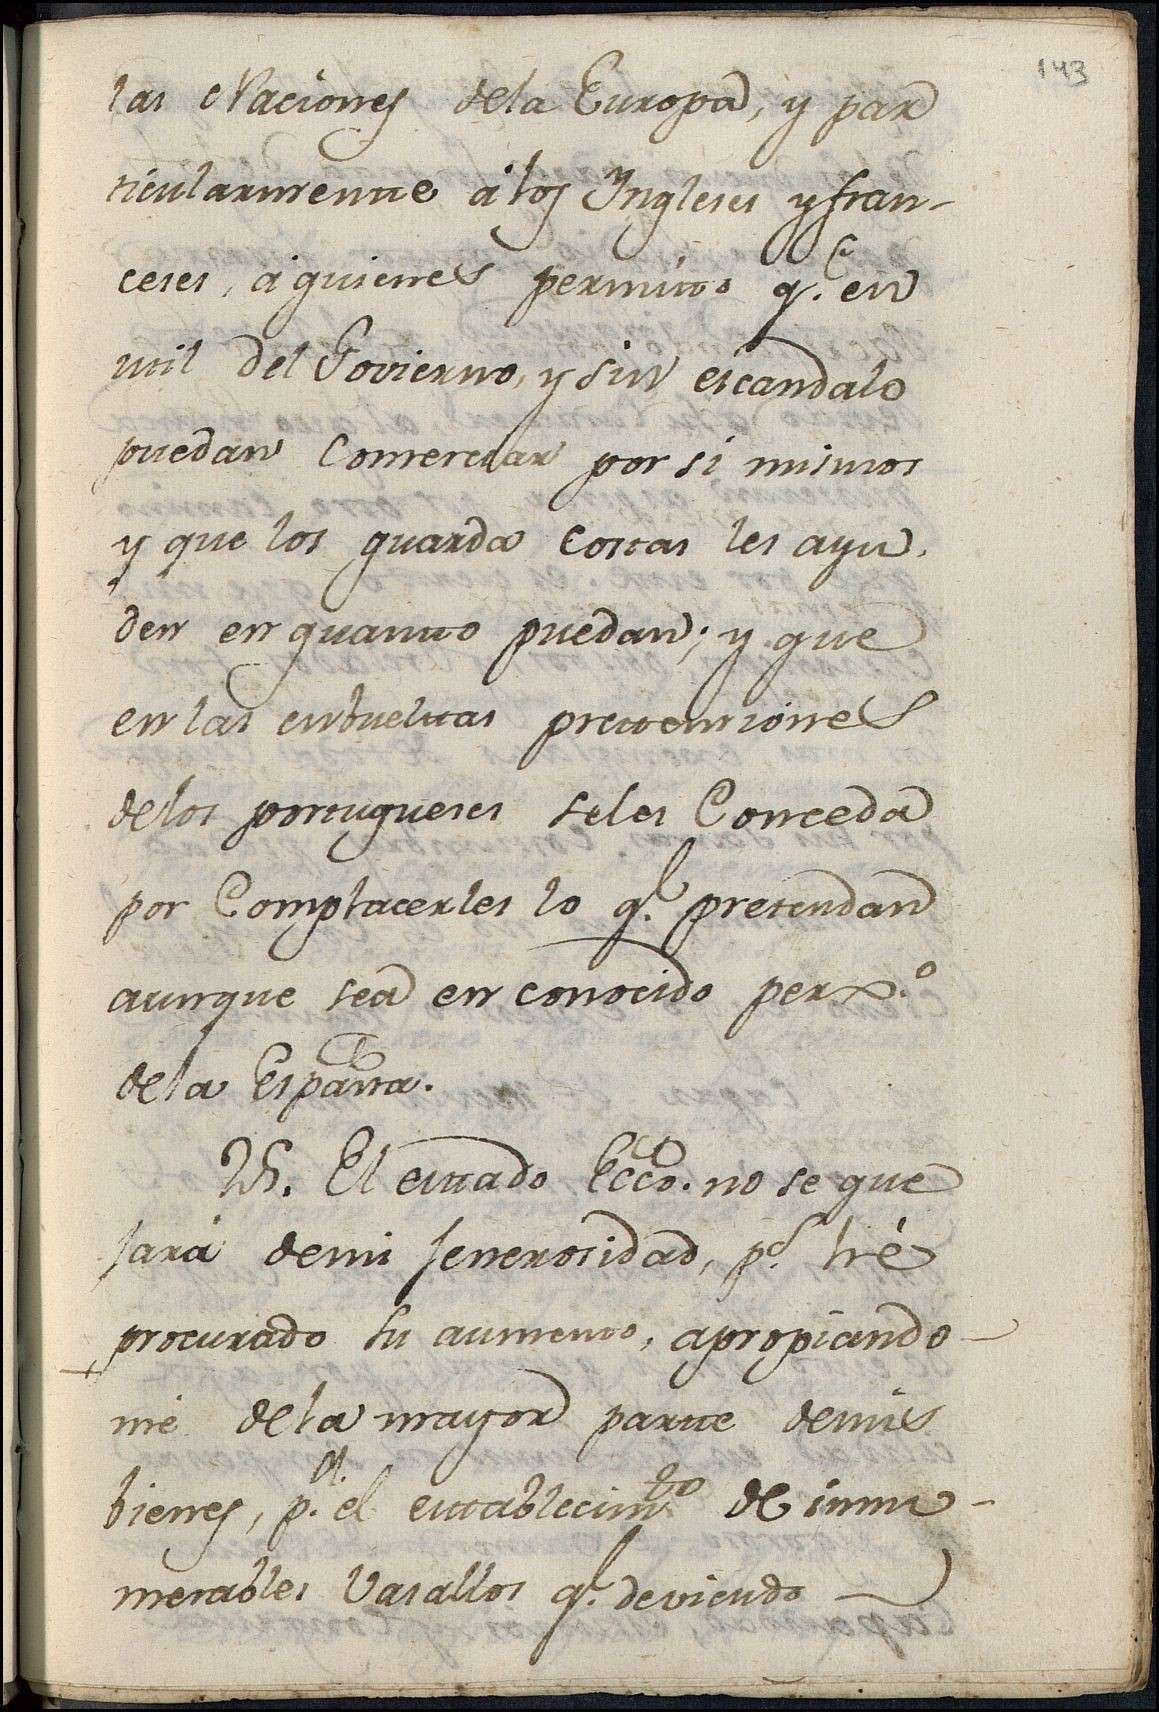 143
las Naciones dela Europa, y par
ticularmente á los Yngleses y fran-
ceses, á quienes permito q.e en
util del Govierno, y sin escandalo
puedan Comerciar por si mismos
y que los guarda Costas les ayu-
den en quanto puedan; y que
en las enbueltas pretensiones
delos portugueses seles Conceda
por Complacerles lo q.e pretendan
aunque sea en conocido perx.o
dela España.
25. El estado Ecco. no se que
jará demi jenerosidad, p.s hé
procurado su aumento, apropiando-
me dela mayor parte demis
bienes, p.a el establecim.to de innu-
merables Vasallos q.e deviendo